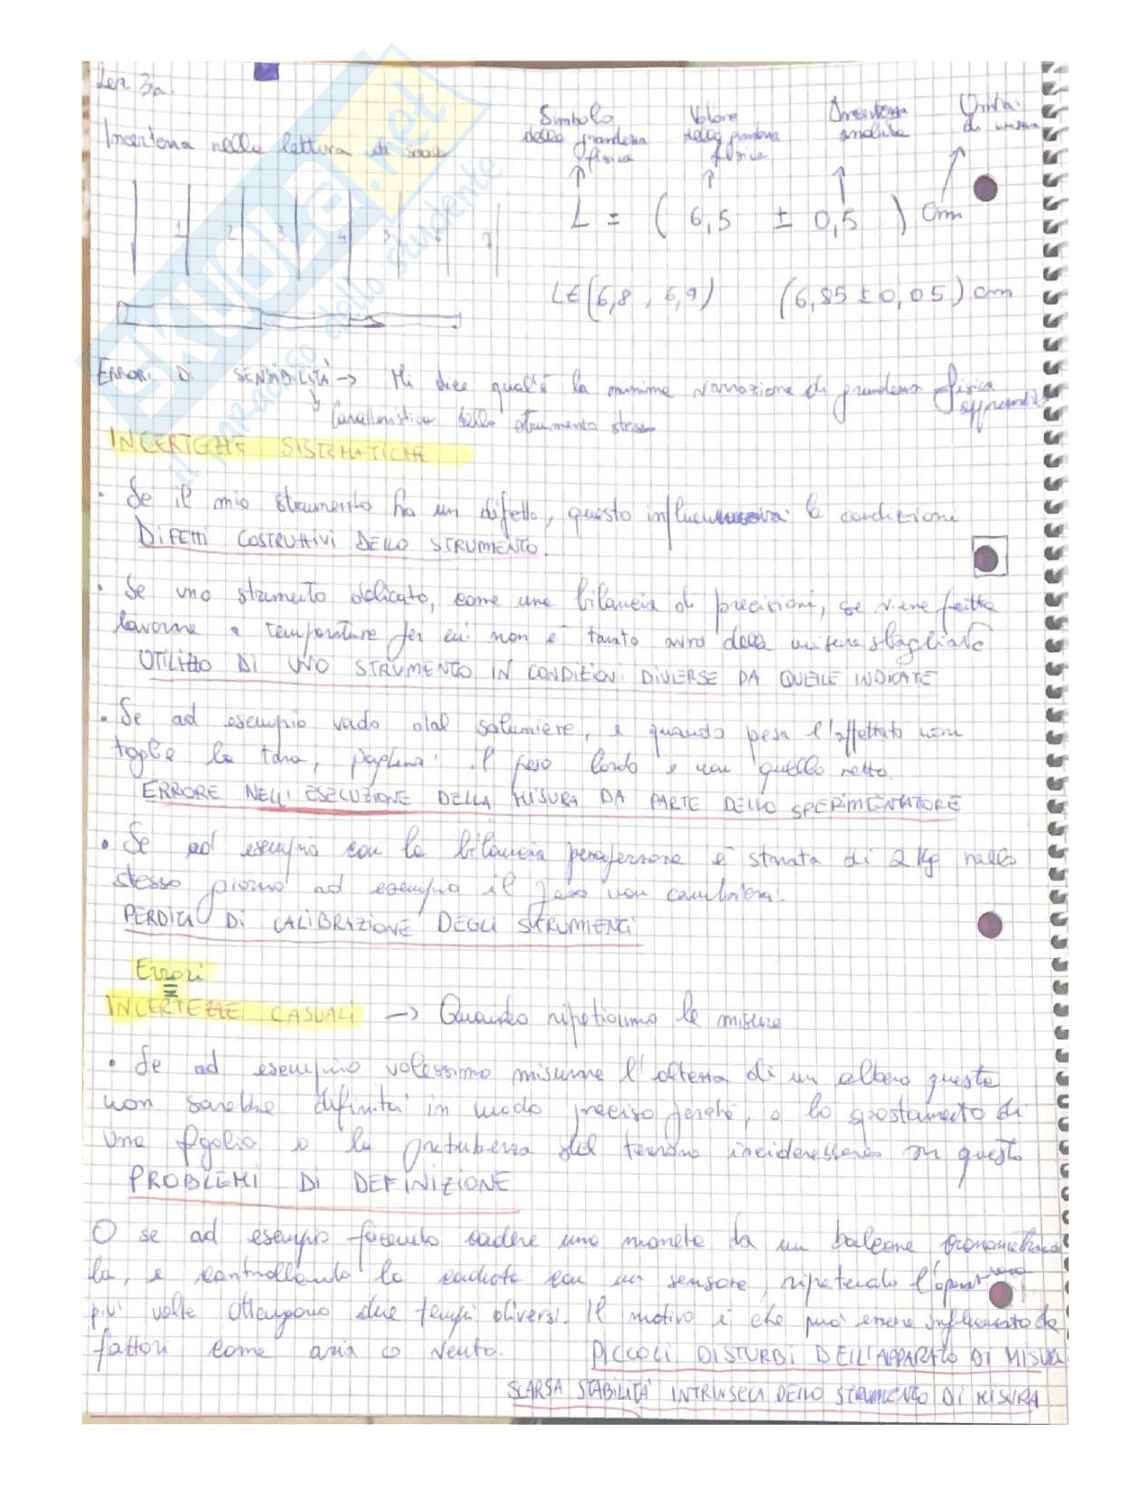 Lez 3a
Incertezza nella lettura di scale
Simbolo della grandezza fisica
Valore della grandezza fisica
Incertezza assoluta
Unità di misura
L = ( 6,5 ± 0,5 ) cm
1 2 3 4 5 6 7
L∈(6,8 , 6,9) (6,85 ± 0,05) cm
ERRORI DI SENSIBILITÀ → Mi dice qual'è la minima variazione di grandezza fisica apprezzabile
Caratteristica dello strumento stesso
INCERTEZZE SISTEMATICHE
• Se il mio strumento ha un difetto, questo influenzerà la condizione
DIFETTI COSTRUTTIVI DELLO STRUMENTO.
• Se uno strumento delicato, come una bilancia di precisioni, se viene fatta
lavorare a temperature per cui non è tarato avrò della misura sbagliata
UTILIZZO DI UNO STRUMENTO IN CONDIZIONI DIVERSE DA QUELLE INDICATE
• Se ad esempio vado dal salumiere, e quando pesa l'affettato non
toglie la tara, pagherai il peso lordo e non quello netto.
ERRORE NELL'ESECUZIONE DELLA MISURA DA PARTE DELLO SPERIMENTATORE
• Se ad esempio con la bilancia pesapersone è starata di 2 Kg nello
stesso giorno ad esempio il peso non cambierà.
PERDITA DI CALIBRAZIONE DEGLI STRUMENTI
Errori
≡
INCERTEZZE CASUALI → Quando ripetiamo le misure
• Se ad esempio volessimo misurare l'altezza di un albero questa
non sarebbe definita in modo preciso perché, o lo spostamento di
una foglia o la del terreno inciderebbero su questo
PROBLEMI DI DEFINIZIONE
O se ad esempio facendo cadere una moneta da un balcone
la, e controllando la caduta con un sensore, ripetendo l'operazione
più volte ottengono due tempi diversi. Il motivo è che può essere influenzato da
fattori come aria o vento. PICCOLI DISTURBI DELL'APPARATO DI MISURA
SCARSA STABILITÀ INTRINSECA DELLO STRUMENTO DI MISURA
SKUOLA.net
il paradiso dello studente